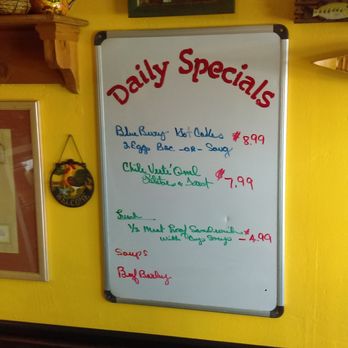 Daily Specials
Blue Bury Hot Cakes $8.99
2 Eggs Bac - OR - Saug
Chile Verde Oml $7.99
Lunch
1/2 Meat Loaf Sandwich
With Cup Soup - 4.99
Soups
Beef Barley
WELCOME